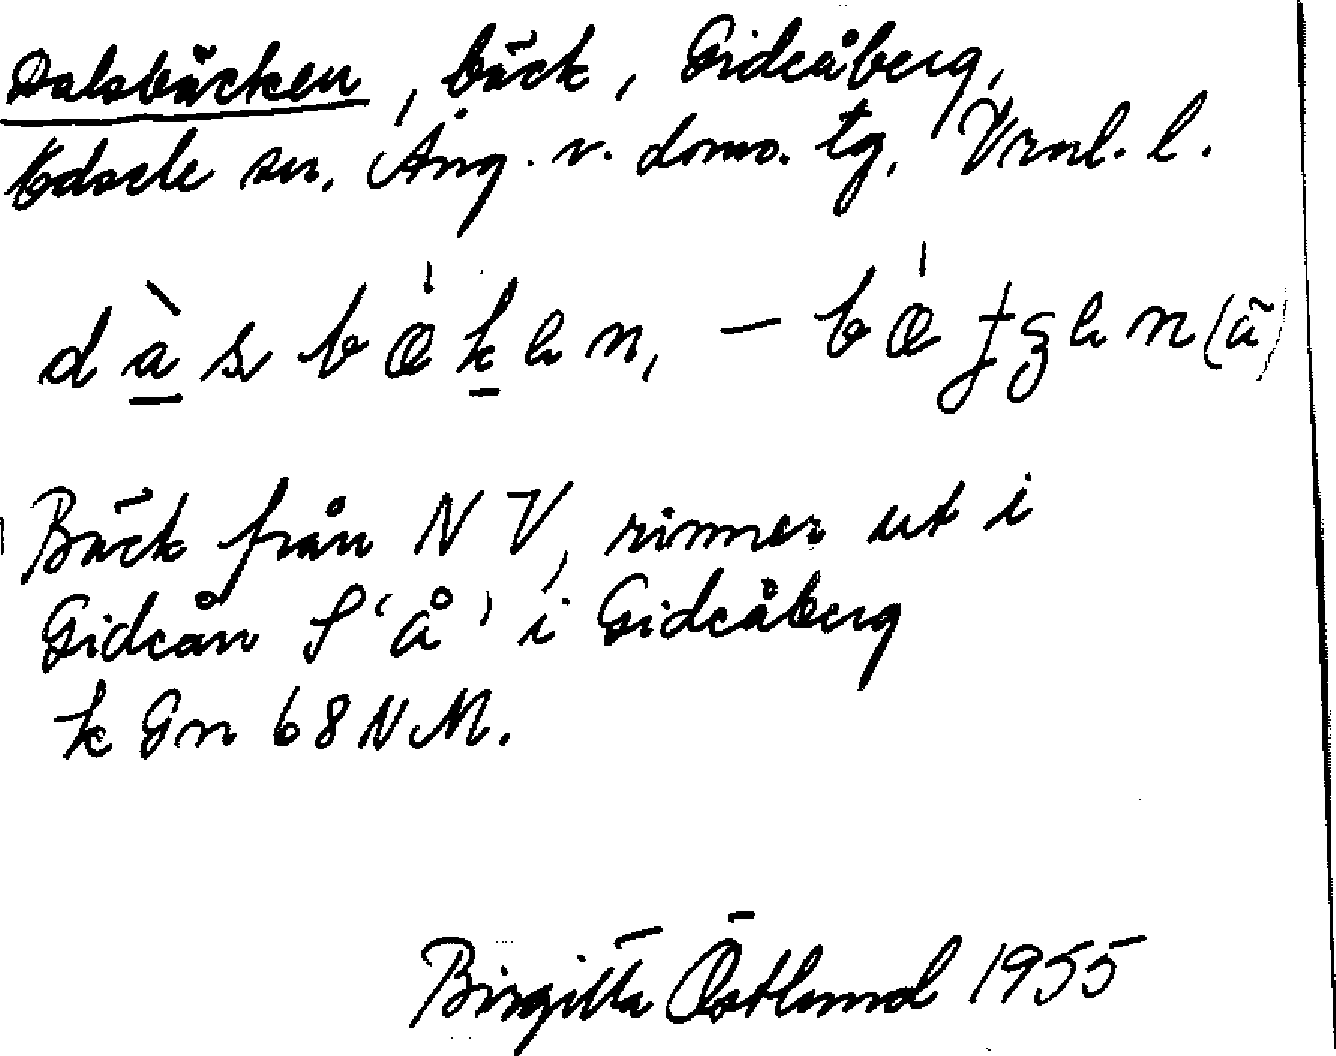 Dalsbäcken, bäck, Gideåberg,
Edsele sn. Ång. v. doms. tg, Vrnl. l.
Bäck från NV, rinner ut i
Gideån S 'å' i Gideåberg
k Gn 68 NM.
Birgitta Östlund 1955